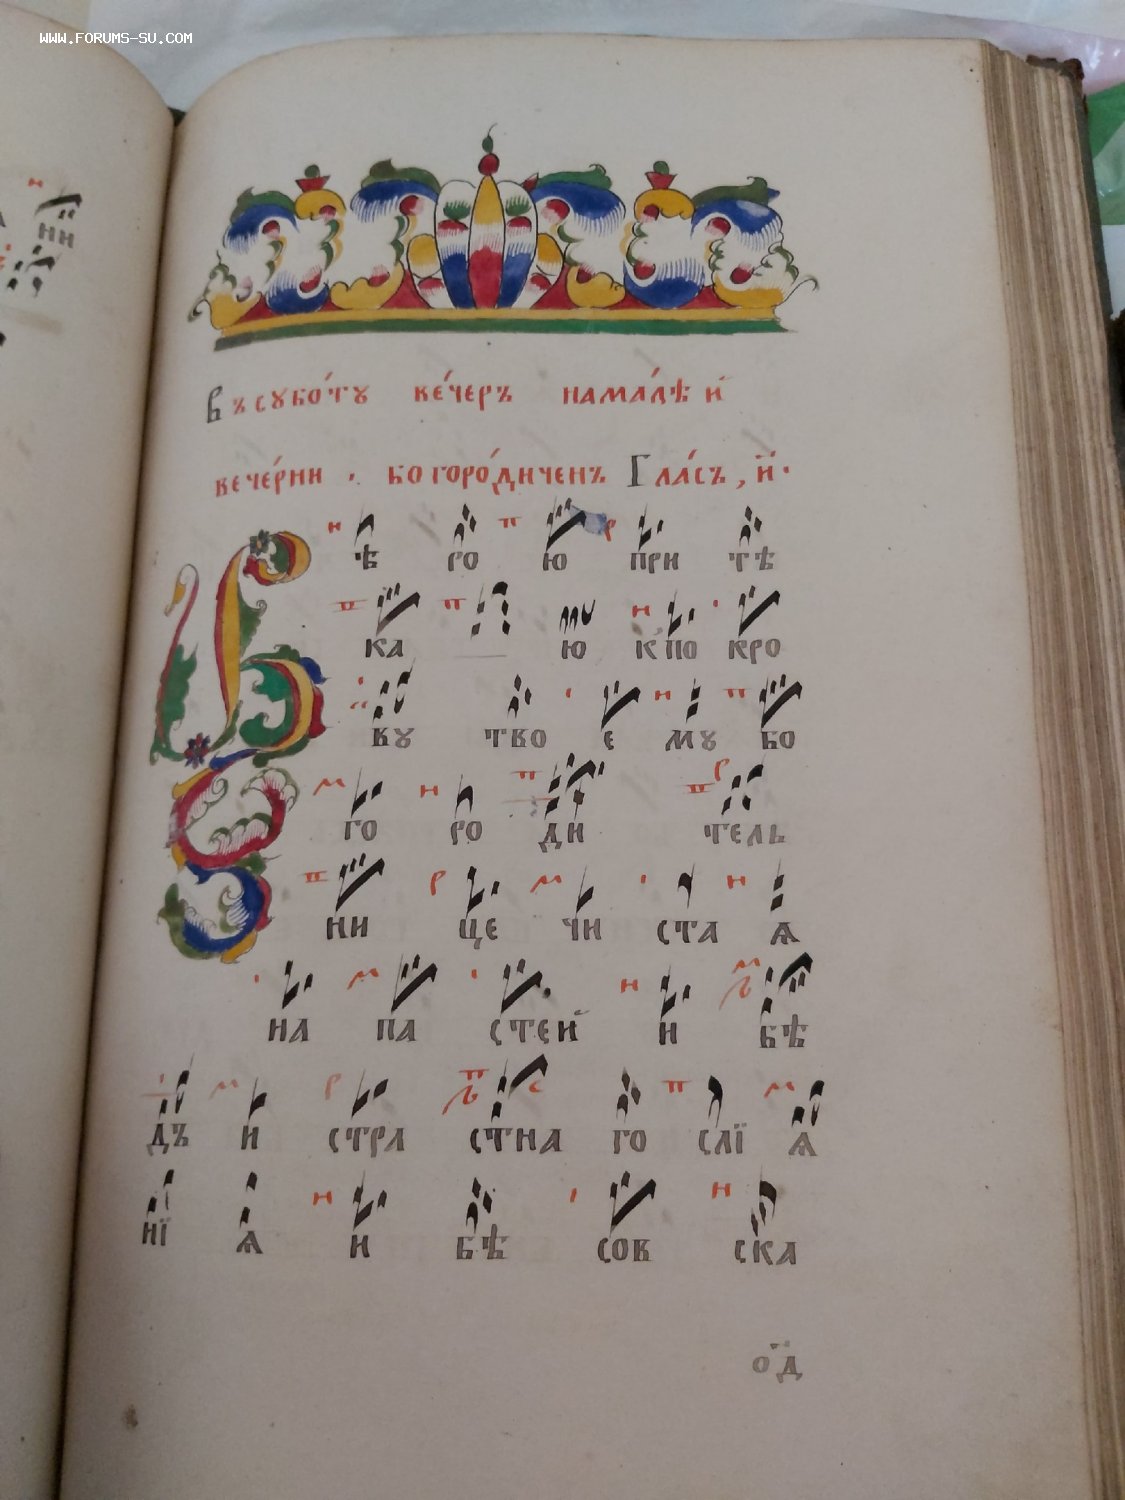 WWW.FORUMS-SU.COM
НИ
Въ сꙋбо́тꙋ ве́черъ на ма́лѣй
вече́рни . богоро́диченъ Гла́съ, и҃ .
Съ вѣ ро ю при тѣ
ка ю к по кро
вꙋ тво е мꙋ бо
го ро ди тель
ни це чи ста ѧ
на па стей и бѣ
дъ и стра стна го слї ѧ
нї ѧ и бѣ сов ска
о҃д